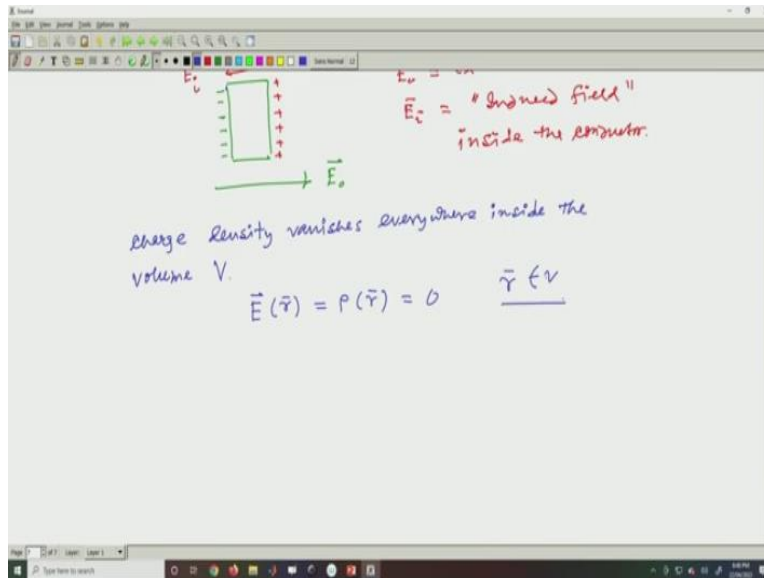 Journal
File Edit View Journal Tools Options Help
Sans Normal 12
E⃗i
E⃗i = "Induced field"
inside the conductor.
E⃗o
charge density vanishes everywhere inside the
volume V.
E⃗(r̄) = ρ(r̄) = 0 r̄ ∈ v
Page 7 of 7 Layer: Layer 1
Type here to search